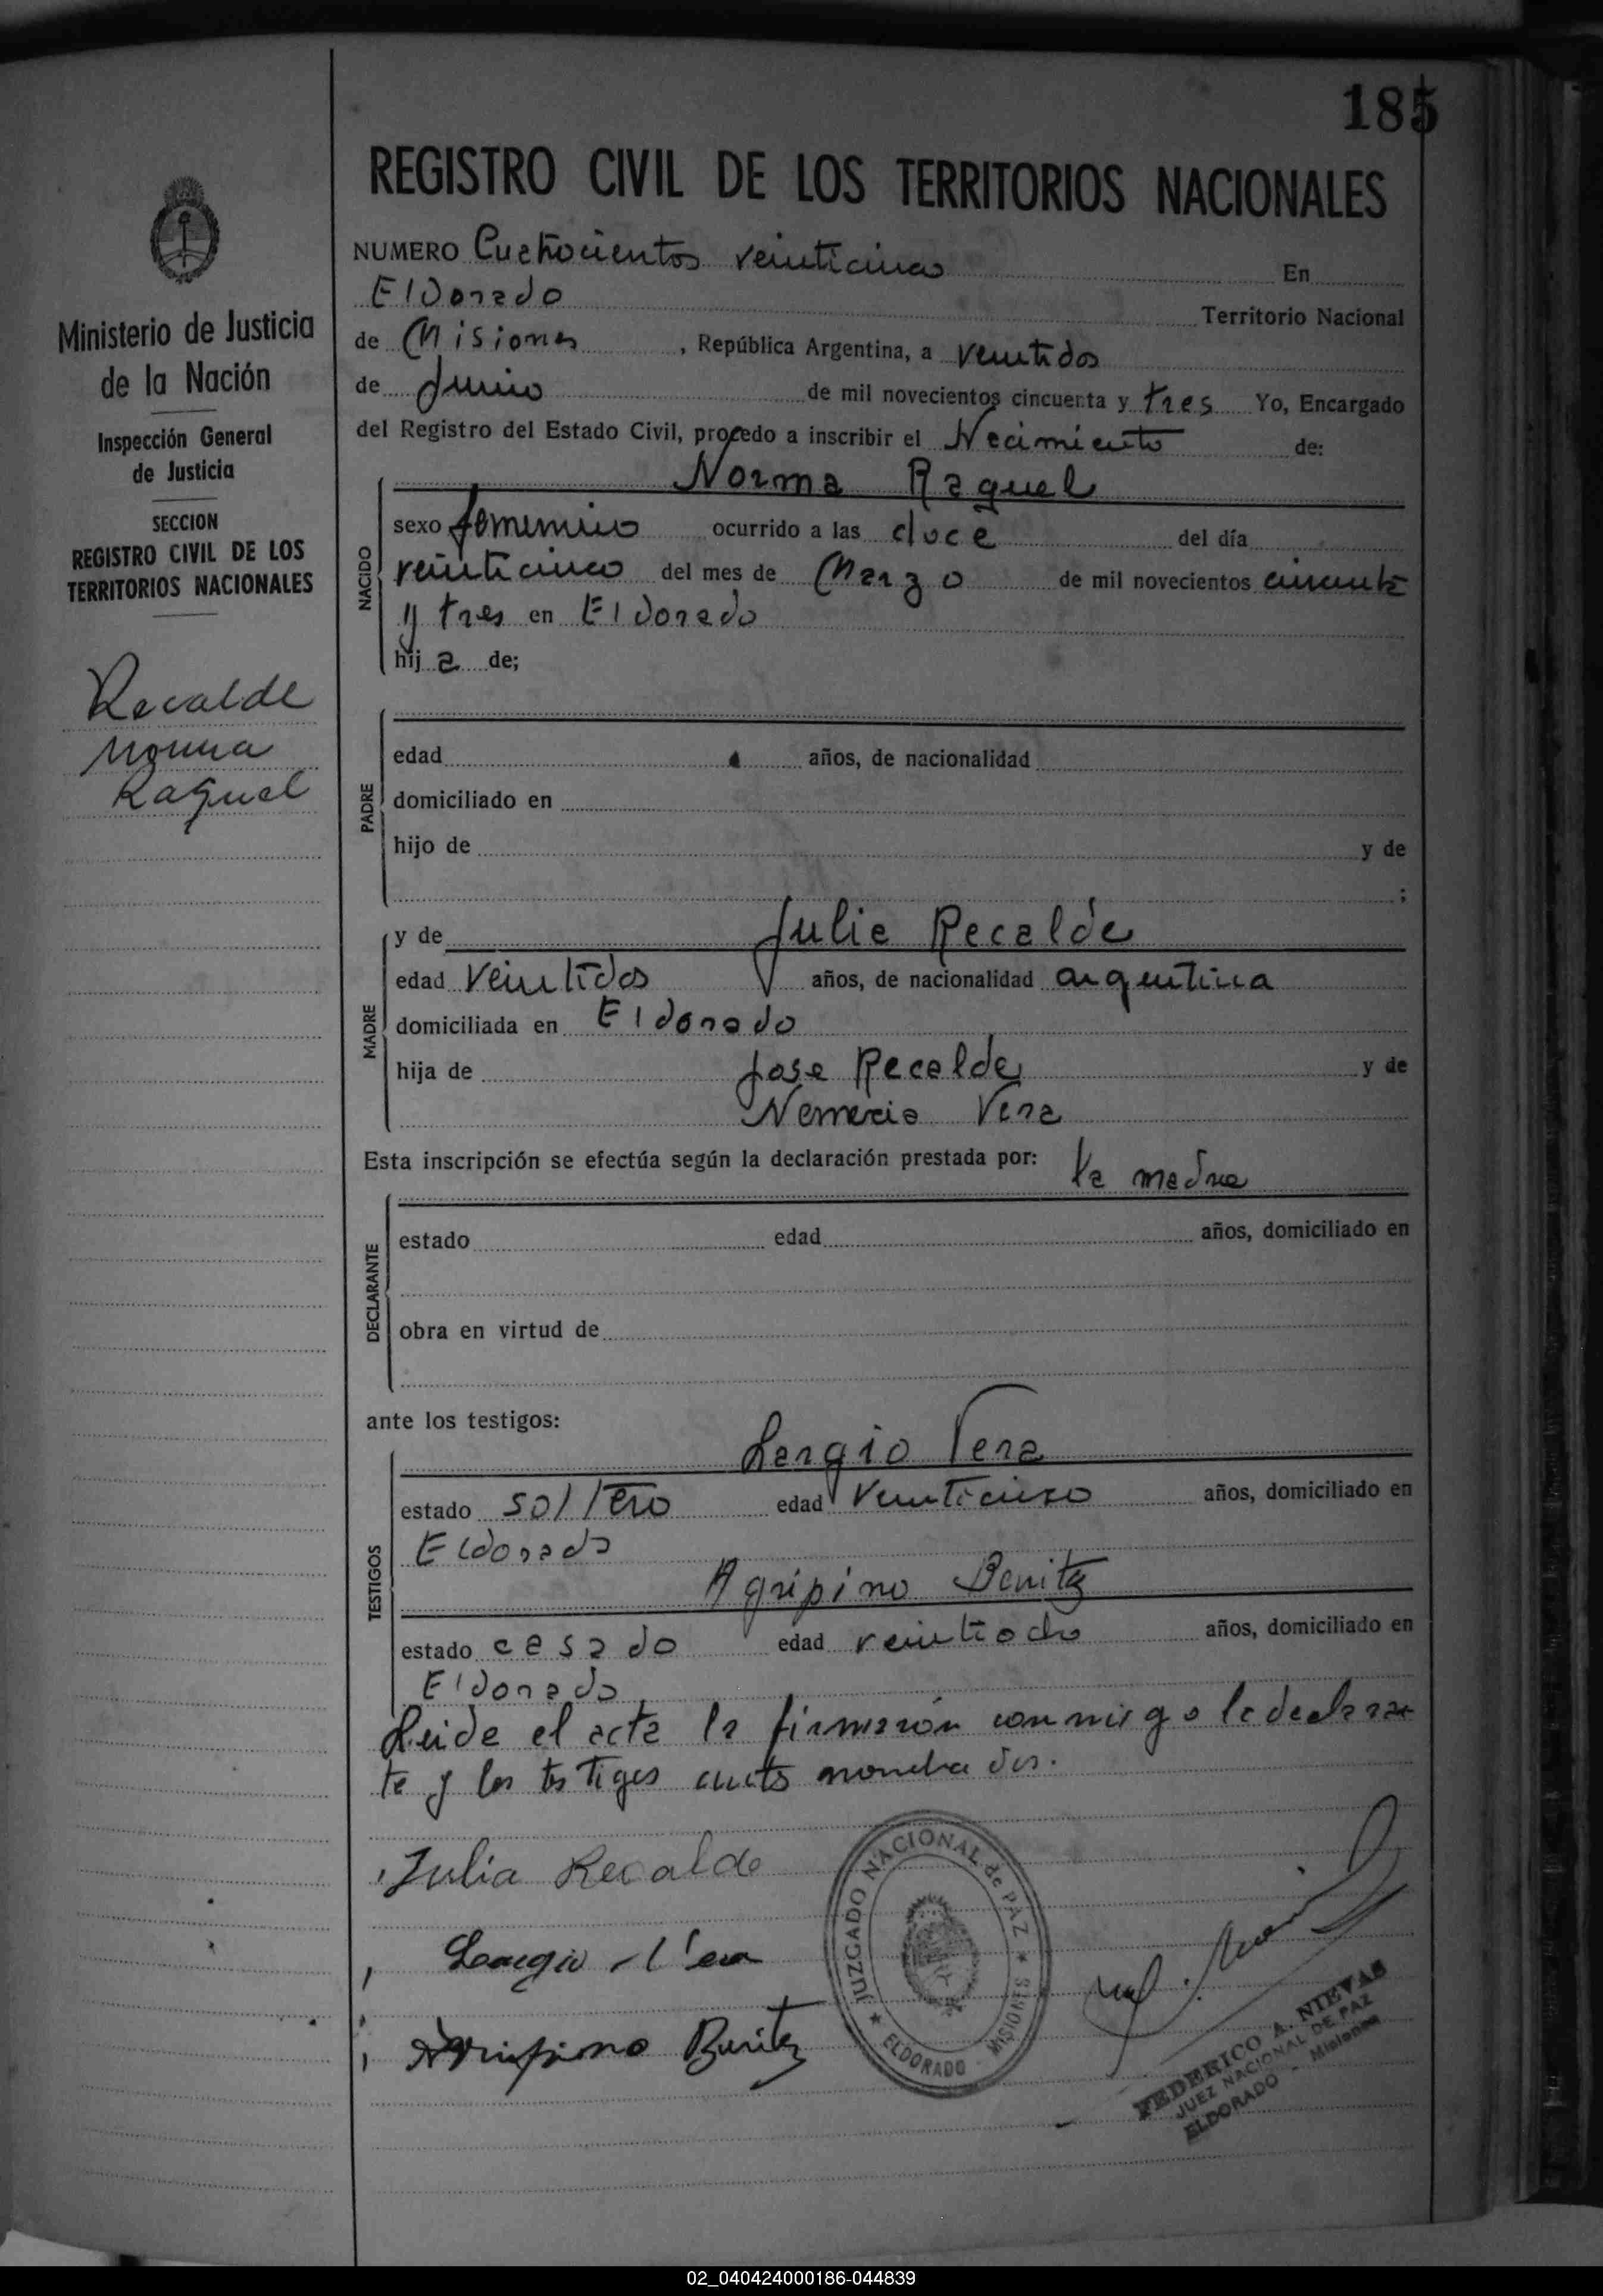 185
REGISTRO CIVIL DE LOS TERRITORIOS NACIONALES
NUMERO Cuatrocientos veinticinco En
ElDorado Territorio Nacional
de Misiones, República Argentina, a veintidos
de Junio de mil novecientos cincuenta y tres Yo, Encargado
del Registro del Estado Civil, procedo a inscribir el Nacimiento de:
Ministerio de Justicia
de la Nación
Inspección General
de Justicia
SECCION
REGISTRO CIVIL DE LOS
TERRITORIOS NACIONALES
Recalde
Norma
Raquel
NACIDO
Norma Raquel
sexo femenino ocurrido a las doce del día
veinticinco del mes de Marzo de mil novecientos cincuenta
y tres en Eldorado
hija de;
PADRE
edad años, de nacionalidad
domiciliado en
hijo de y de
;
MADRE
y de Julia Recalde
edad veintidos años, de nacionalidad argentina
domiciliada en Eldorado
hija de Jose Recalde y de
Nemecia Vera
Esta inscripción se efectúa según la declaración prestada por: la madre
DECLARANTE
estado edad años, domiciliado en
obra en virtud de
ante los testigos:
TESTIGOS
Sergio Vera
estado soltero edad veinticinco años, domiciliado en
Eldorado
Agripino Benitez
estado casado edad veintiocho años, domiciliado en
Eldorado
Leida el acta la firmaron conmigo la declaran
te y los testigos antes nombrados.
Julia Recalde
Sergio Vera
Agripino Benitez
JUZGADO NACIONAL de PAZ
ELDORADO - MISIONES
FEDERICO A. NIEVAS
JUEZ NACIONAL DE PAZ
ELDORADO - Misiones
02_040424000186-044839